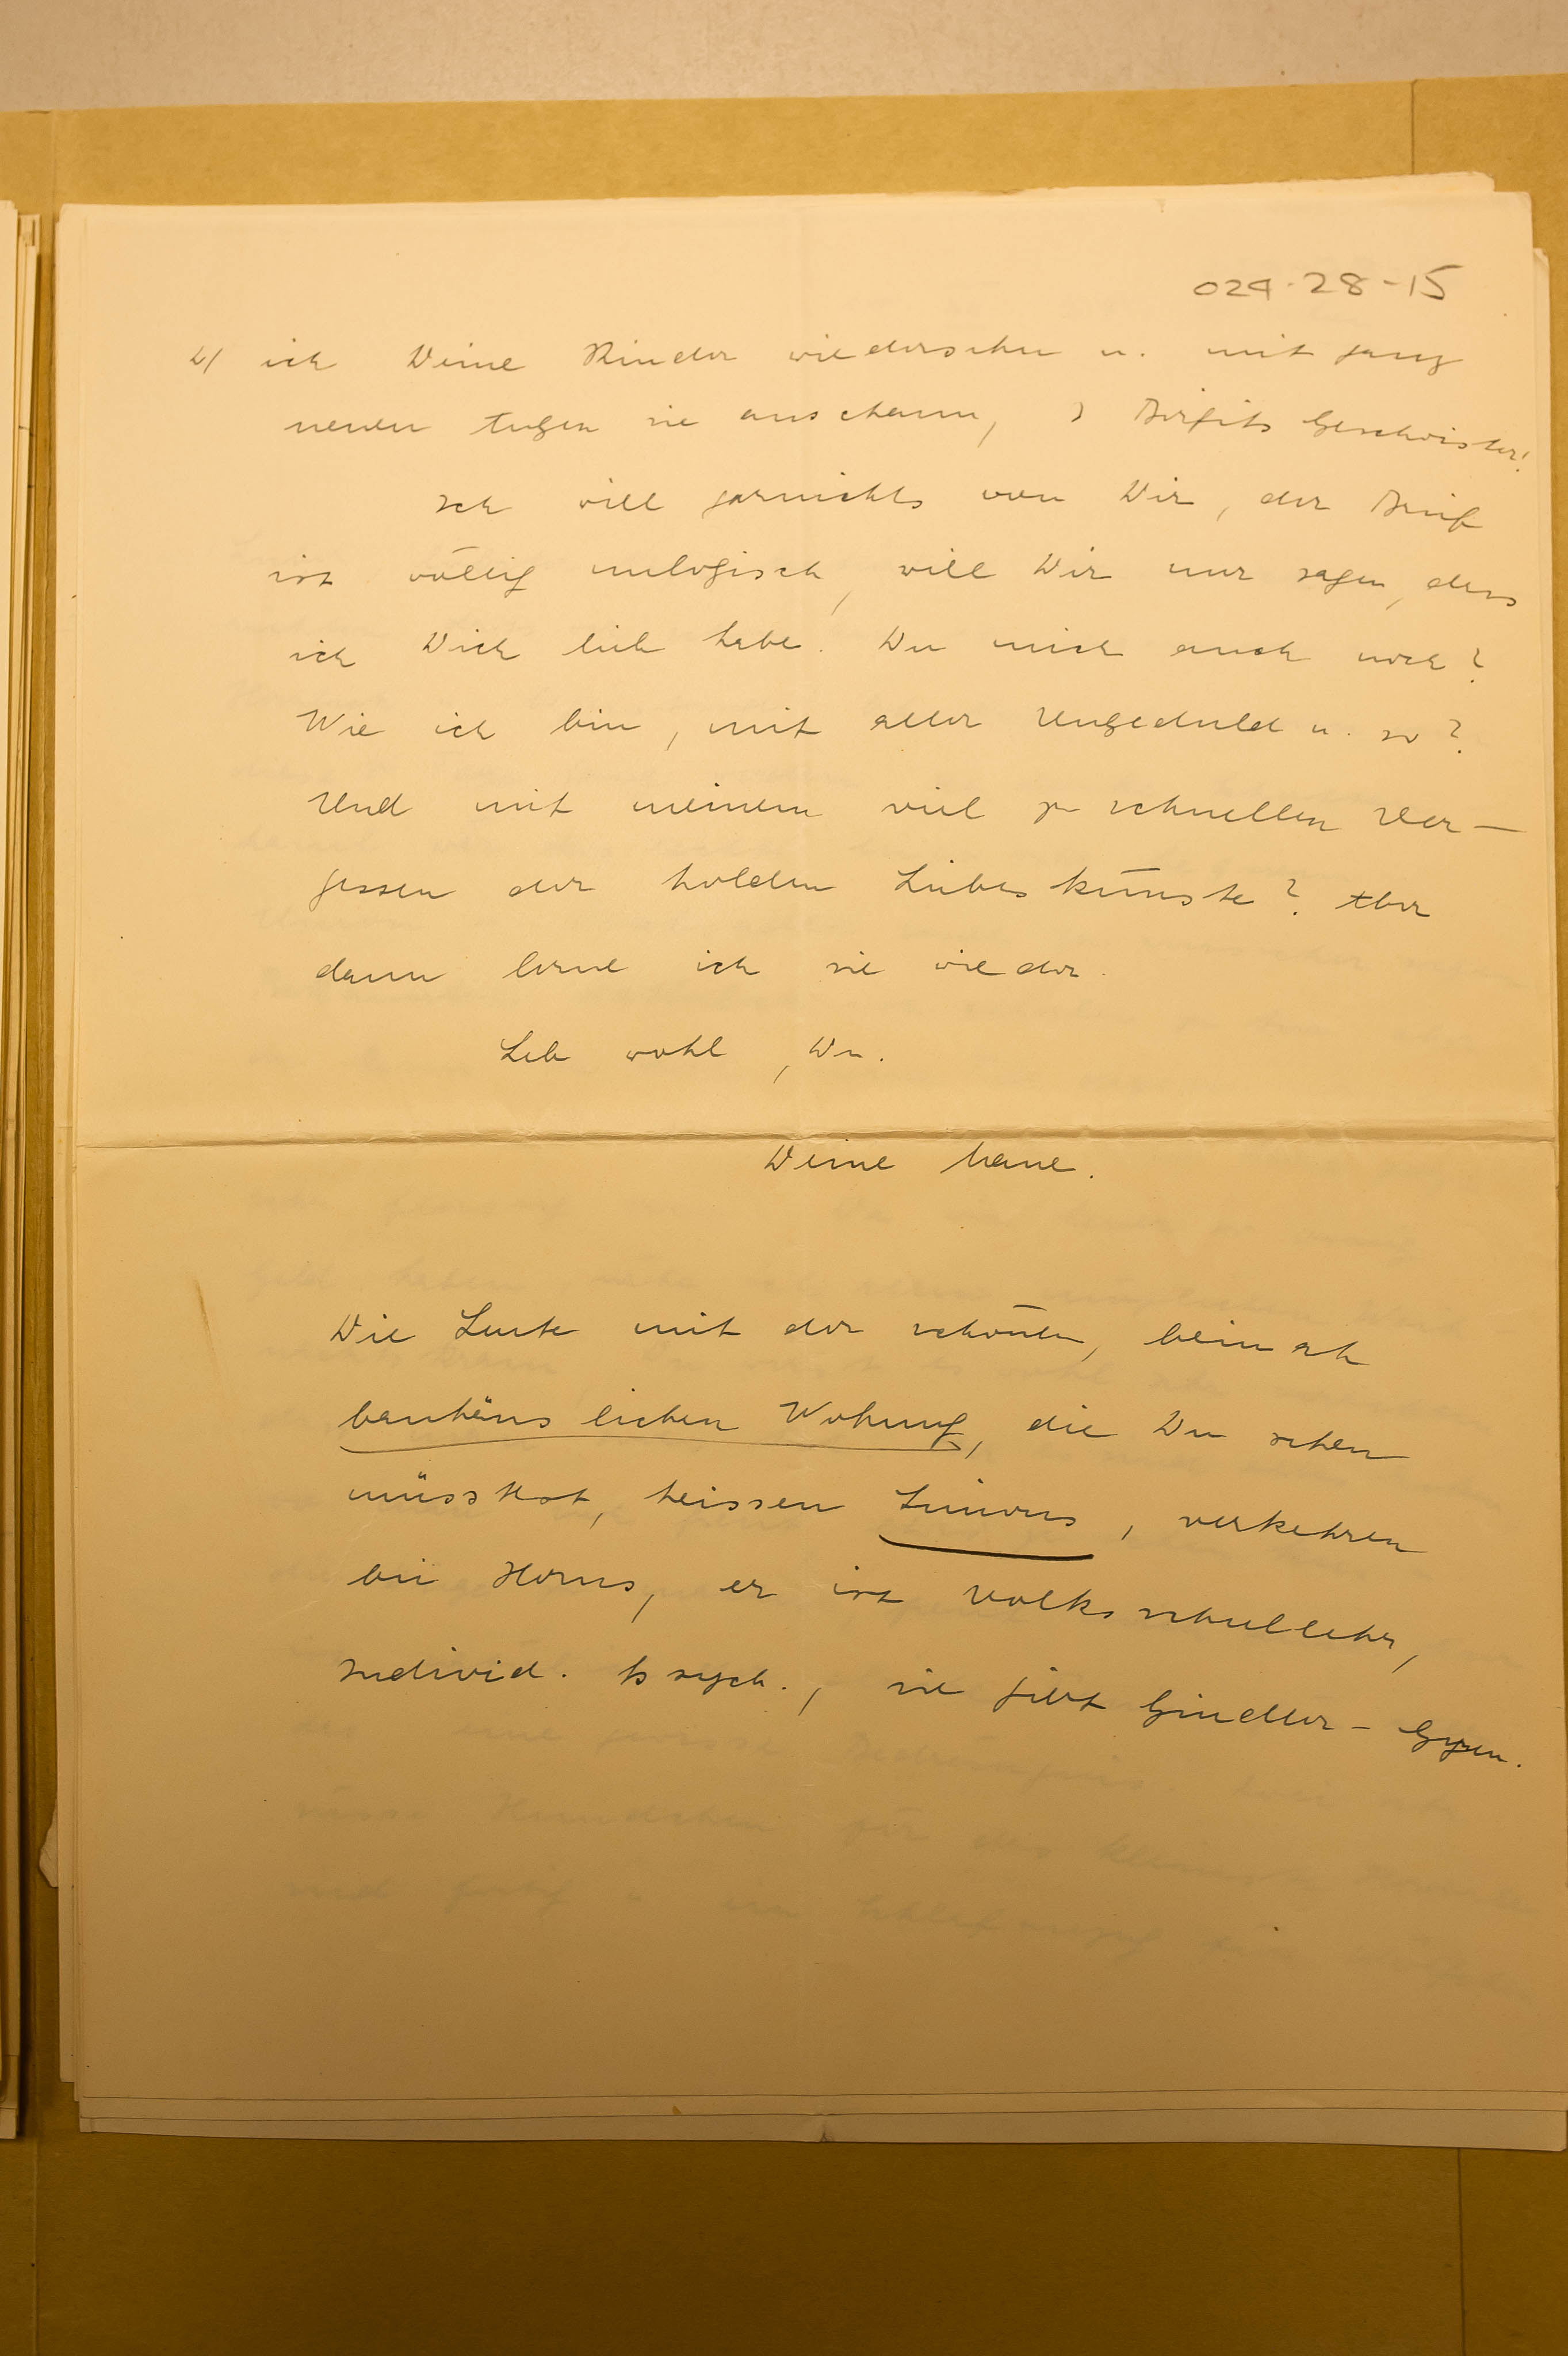 029-28-15
2/ ich Deine Kinder wiedersehn u. mit ganz
neuen Augen sie anschaun, 3 Birgits Geschwister!
Ich will garnichts von Dir, der Brief
ist völlig unlogisch, will Dir nur sagen, dass
ich Dich lieb habe. Du mich auch noch?
Wie ich bin, mit aller Ungeduld u. so?
Und mit meinem viel zu schnellen Ver-
gessen der holden Liebeskünste? Aber
dann lerne ich sie wieder.
Leb wohl, Du.
Deine
Die Leute mit der schönen, beinah
bauhäuslichen Wohnung, die Du sehen
müsstest, heissen, verkehren
bei Horns, er ist Volksschullehr,
Individ. Psych., sie gibt Gindler-Gym.